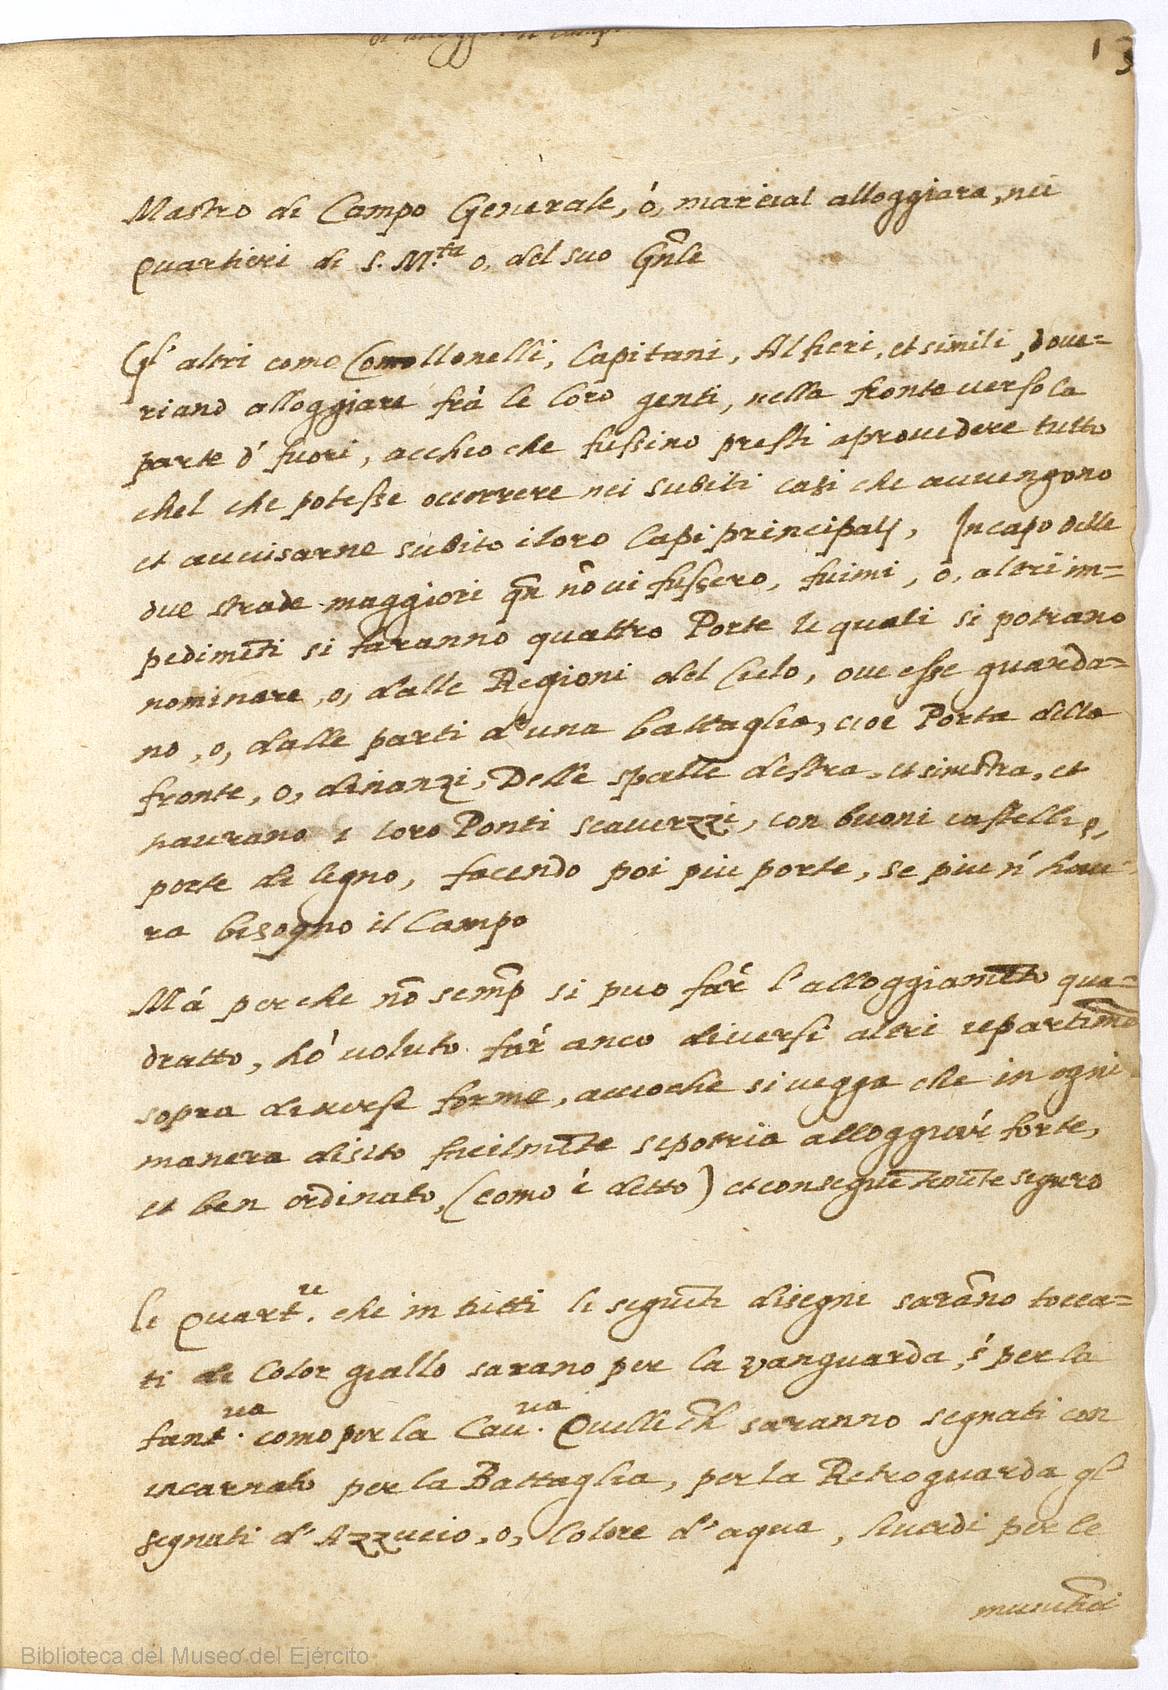 13
Mastro di Campo Generale, ò, marical alloggiara, nei
Quartieri di S. M.tà o, del suo Gn̄le
Gl' altri come Comollonelli, Capitani, Alfieri, et simili, doue=
riano alloggiare frà le loro genti, nella fronte verso la
parte d' fuori, acchio che fussino presti aprouedere tutto
chel che potesse occorrere nei subiti casi che auuengono
et auuisarne subito i loro Capi principalj, In capo delle
due strade maggiori qn̄ nō ui fussero, fiumi, ò, altri im=
pedimēti si faranno quattro Porte le quali si potrano
nominare, o, dalle Regioni del Cielo, oue esse guarda=
no, o, dalle parti d'una battaglia, cioe Porta della
fronte, o, dinanzi, Delle spalle destra, et sinestra, et
haurano i loro Ponti scauezzi, con buoni rastelli, o,
porte di legno, facendo poi piu porte, se piu n' hau=
ra bisogno il Campo
Mà perche nō semp̄ si puo far l'alloggiamēto qua=
dratto, hò uoluto far anco diuersi altri repartimē
sopra diuerse forme, accioche si uegga che in ogni
manera disito facilmēte sipotria alloggiar forte,
et ben ordinato, (como è ditto) et conseguētemēte seguro
li Quart.ri che in tutti li seguēti disegni sarāno tocca=
ti di Color giallo sarano per la vanguarda, sì per la
fant.ria como per la Cau.ria Quelli ch̄ saranno segnati con
incarnato per la Battaglia, per la Retroguarda gl'
segnati d' Azzurio, o, Colore d' aqua, li uerdi per le
munitioni
Biblioteca del Museo del Ejército